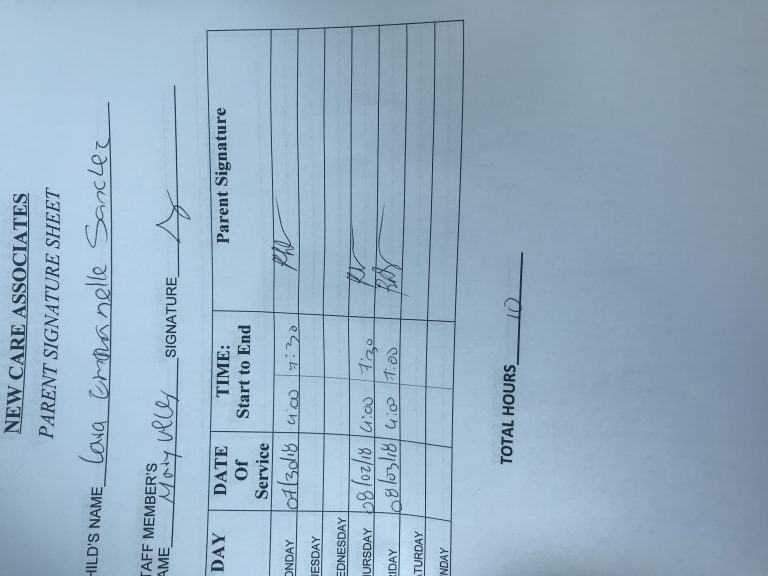 NEW CARE ASSOCIATES
PARENT SIGNATURE SHEET
HILD'S NAME Lara Emmanuelle Sanclez
TAFF MEMBER'S
AME SIGNATURE
DAY DATE Of Service TIME: Start to End Parent Signature
ONDAY 07/30/18 4:00 7:30
UESDAY
EDNESDAY
HURSDAY 08/02/18 4:00 7:30
IDAY 08/03/18 4:00 7:00
TURDAY
NDAY
TOTAL HOURS 10